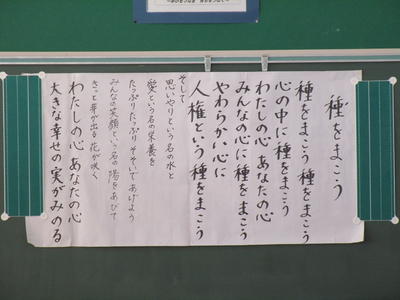 種をまこう
種をまこう 種をまこう
心の中に種をまこう
わたしの心 あなたの心
みんなの心に種をまこう
やわらかい心に
人権という種をまこう
そして
思いやりという名の水と
愛という名の栄養を
たっぷり たっぷり そそいであげよう
みんなの笑顔という名の陽をあびて
きっと芽が出る 花が咲く
わたしの心 あなたの心
大きな幸せの実がみのる